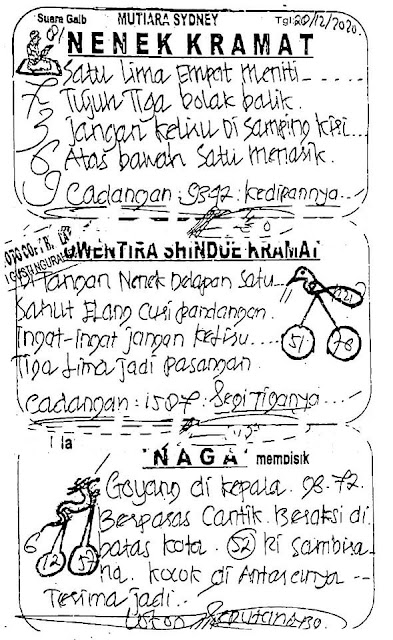 Suara Gaib MUTIARA SYDNEY Tgl 20/12/2020.
NENEK KRAMAT
Satu Lima Empat meniti
7 Tujuh Tiga bolak balik.
3 Jangan keliru Di samping kiri
6 Atas bawah Satu menarik.
9 Cadangan : 9372. kedipannya
UWENTIRA SHINDUE KRAMAT
Di Tangan Nenek Delapan Satu
Sahut Elang Curi pandangan.
Ingat-ingat jangan keliru
51 78
Tiga Lima jadi pasangan.
Cadangan : 1507. Segi Tiganya
NAGA membisik
Goyang di kepala. 98-72.
Berparas Cantik. Beraksi di
6 12 57
batas kota. 52 ki sambira
na. kocok di Antaranya
Terima jadi.